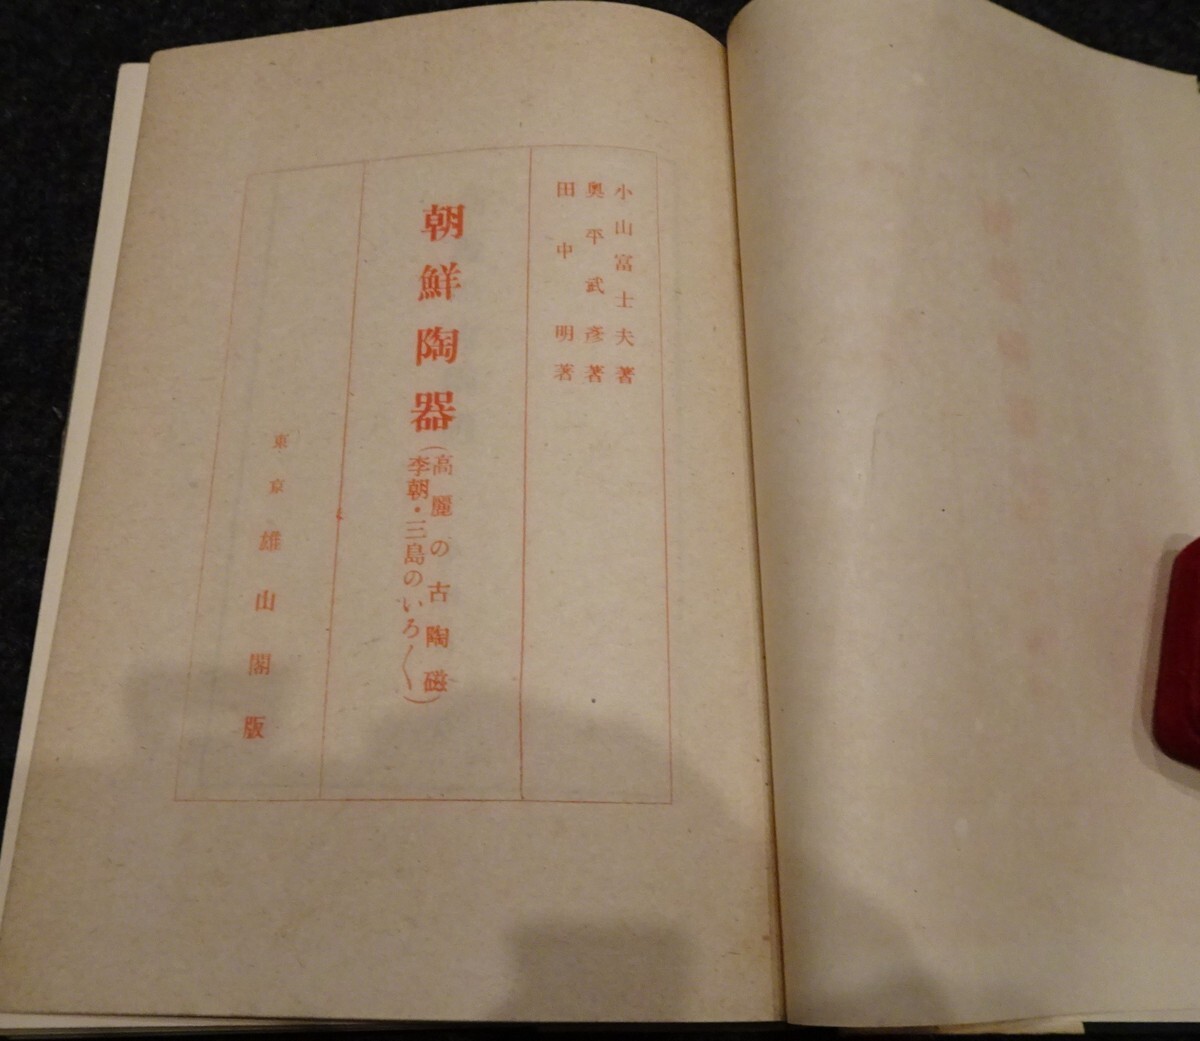 小山富士夫著
奥平武彥著
田中明著
朝鮮陶器
(高麗の古陶磁
李朝・三島のいろ〱)
東京雄山閣版